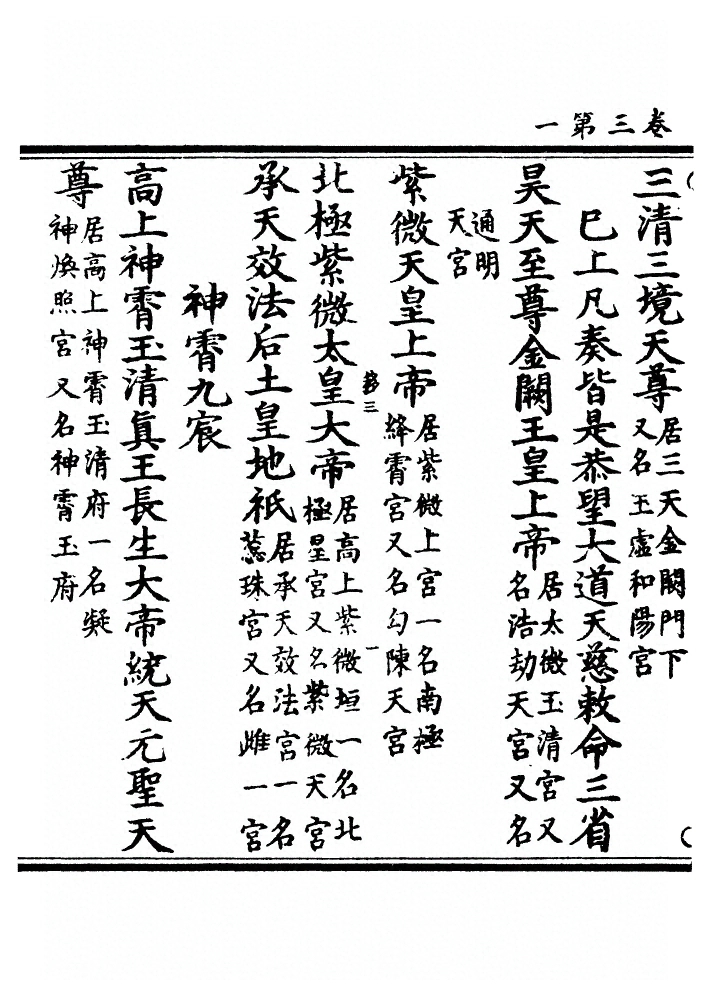 卷三第一
三清三境天尊居三天金闕門下
又名玉虛和陽宮
巳上凡奏皆是恭望大道天慈敕命三省
昊天至尊金闕玉皇上帝居太微玉清宮又
名浩劫天宮又名
通明
天宮
紫微天皇上帝居紫微上宮一名南極
絳霄宮又名勾陳天宮
移三
一
北極紫微太皇大帝居高上紫微垣一名北
極星宮又名紫微天宮
承天效法后土皇地祇居承天效法宮一名
蕋珠宮又名雌一宮
神霄九宸
高上神霄玉清眞王長生大帝統天元聖天
尊居高上神霄玉清府一名凝
神煥照宮又名神霄玉府